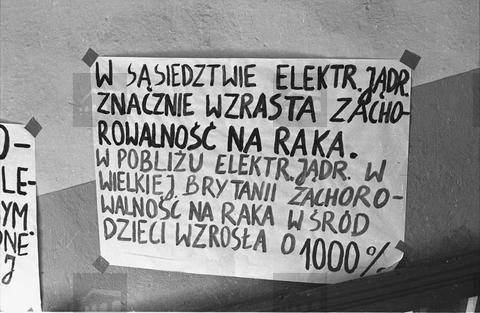 W SĄSIEDZTWIE ELEKTR. JĄDR.
ZNACZNIE WZRASTA ZACHO-
ROWALNOŚĆ NA RAKA.
W POBLIŻU ELEKTR. JĄDR. W
WIELKIEJ BRYTANII ZACHORO-
WALNOŚĆ NA RAKA WŚRÓD
DZIECI WZROSŁA O 1000%
O-
LE-
YM.
ONE
J